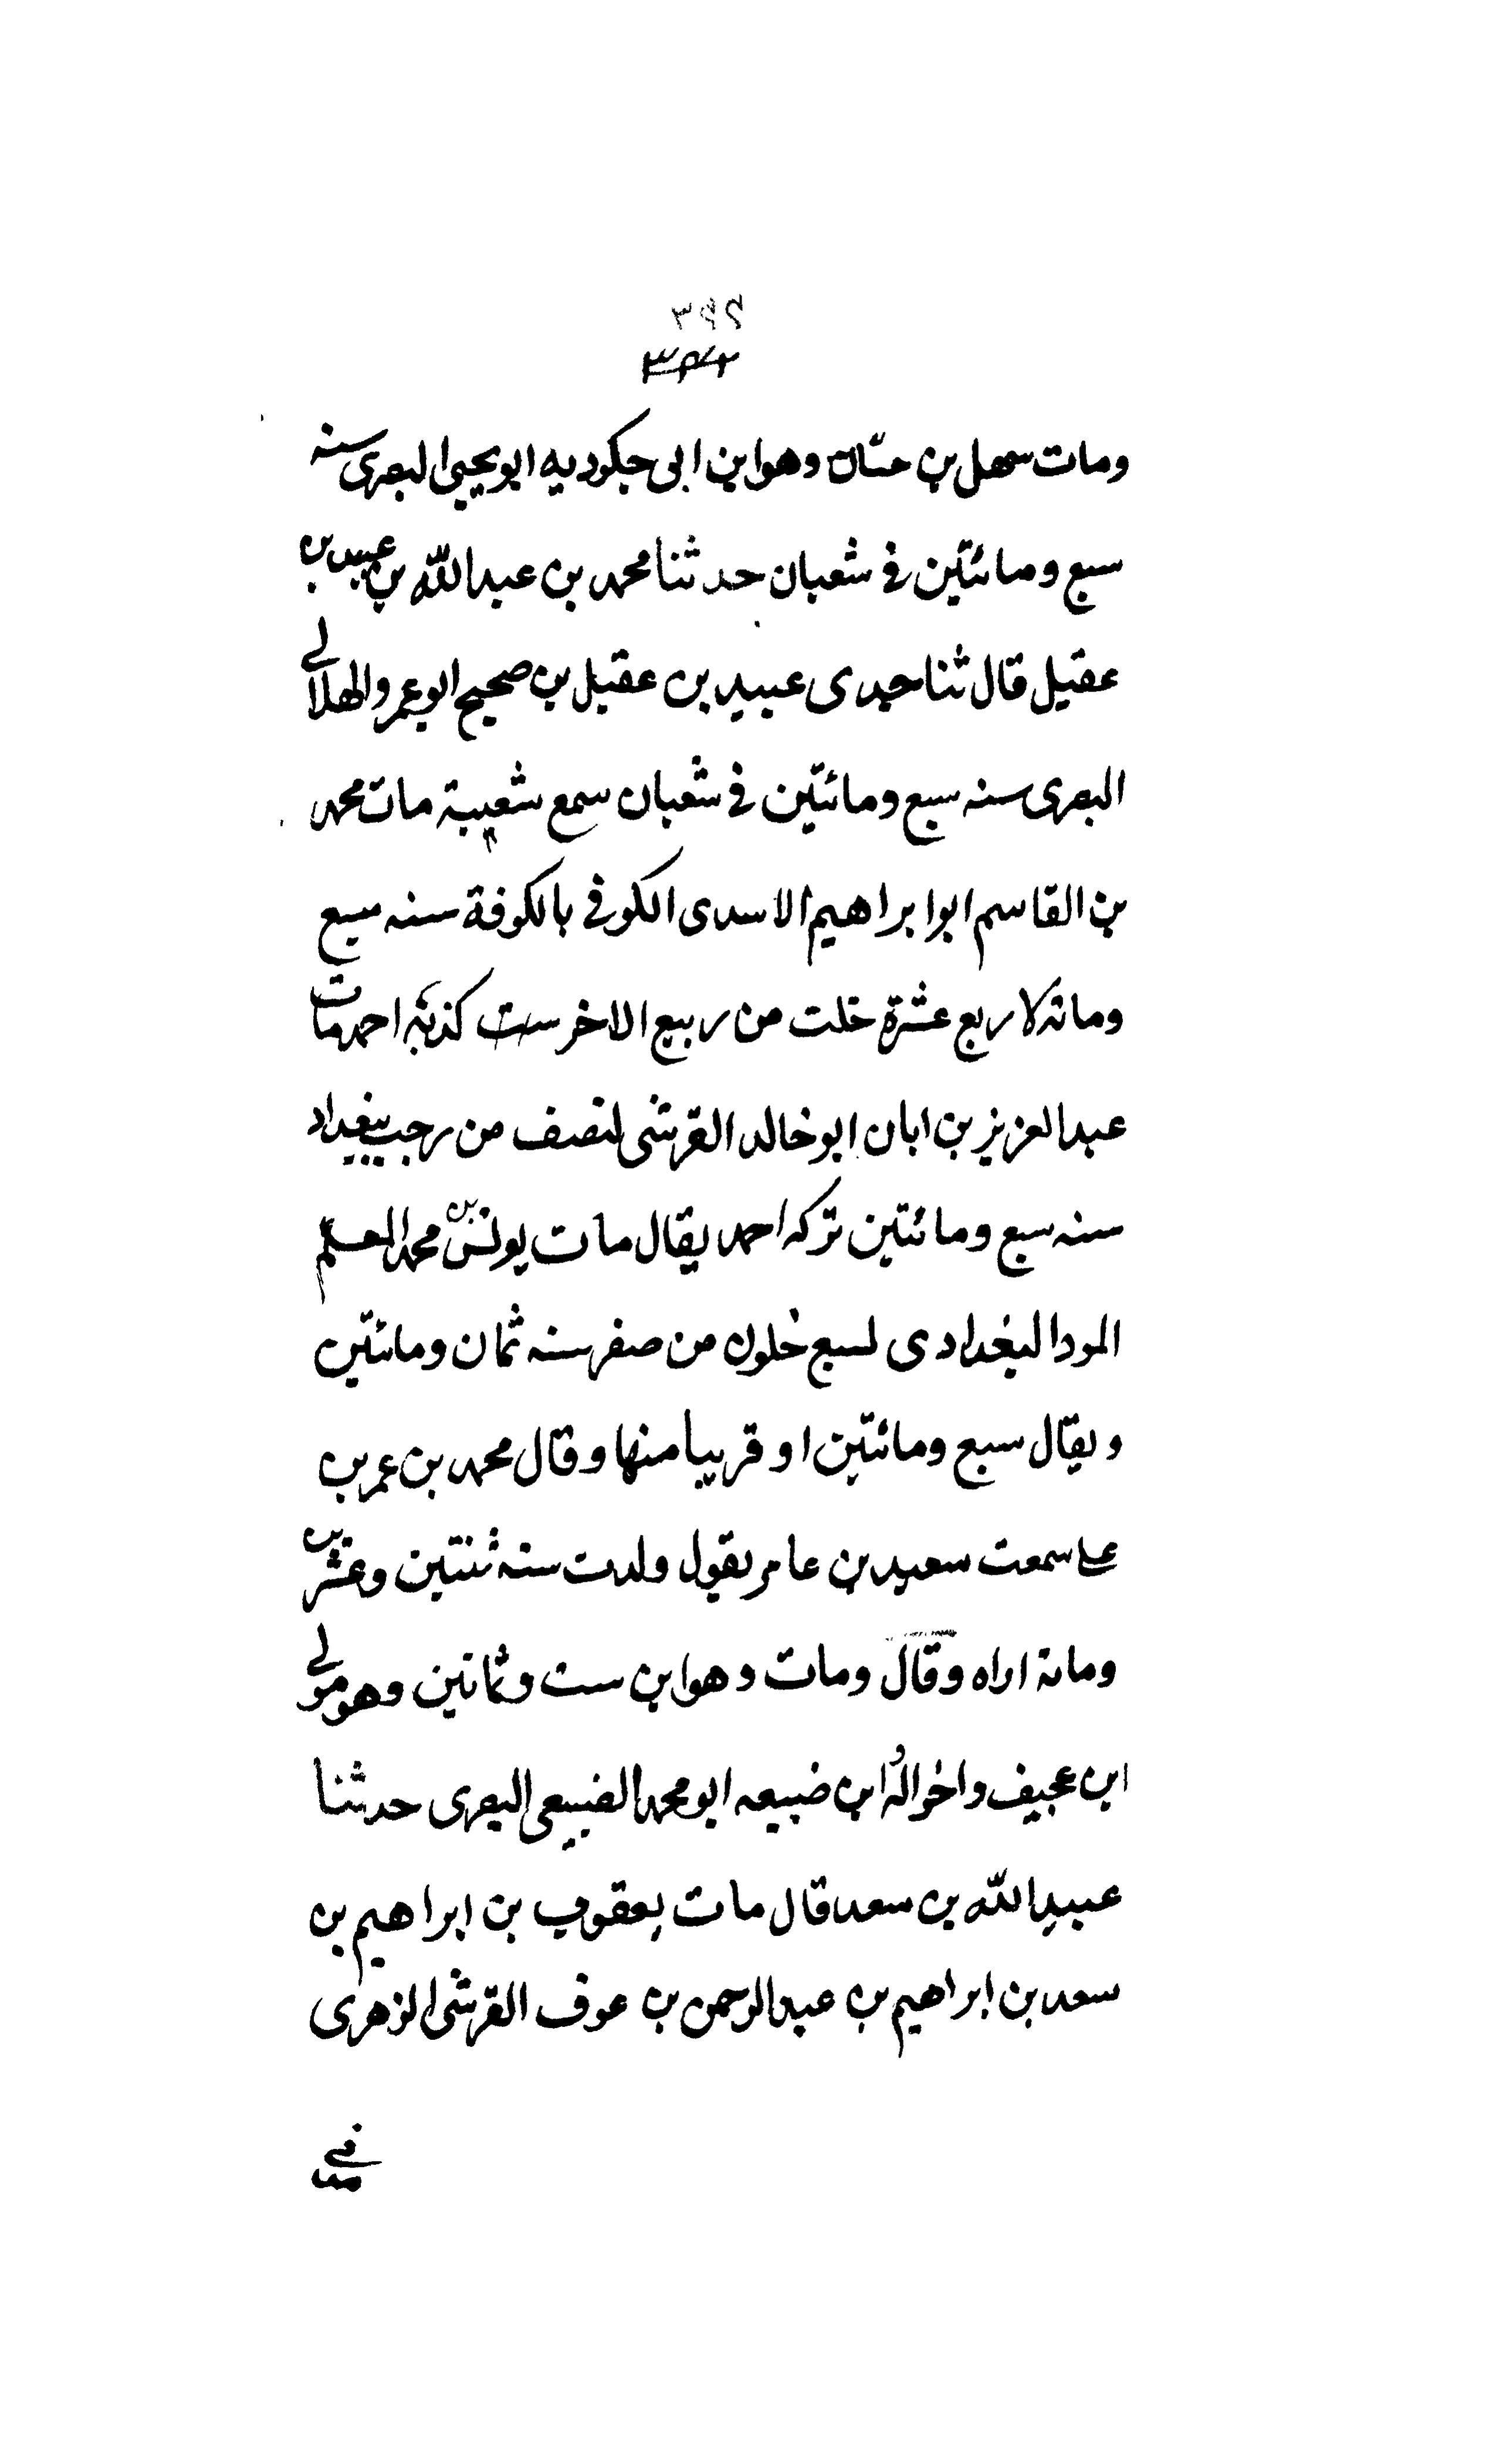 ٣٩٢
ومات سهل بن حسّان وهو ابن ابى جكرديه ابو يحيى البصرى سنه
سبع ومائتين فى شعبان حدثنا محمد بن عبد اللّه بن عبيد بن
عقيل قال ثنا جدى عبيد بن عقيل بن صحيح ابو عمرو الهلالى
البصرى سنه سبع ومائتين فى شعبان سمع شعيبة مات محمد
بن القاسم ابو ابراهيم الاسدى الكوفى بالكوفة سنه سبع
ومائة لاربع عشرة خلت من ربيع الاخر كذبه احمد مات
عبد العزيز بن ابان ابو خالد القرشى لنصف من رجب ببغداد
سنه سبع ومائتين تركه احمد يقال مات يونس بن محمد المعلم
المودا البغدادى لسبع خلون من صفر سنه ثمان ومائتين
ويقال سبع ومائتين او قريبا منها وقال محمد بن عمر بن
على سمعت سعيد بن عامر يقول ولدت سنه ثنتين وعشرين
ومائة اراه وقال ومات وهو ابن ست وثمانين وهو مولى
ابن عجيف واخوالُه ابن ضبيعه ابو محمد الضبيعى البصرى حدثنا
عبيد اللّه بن سعد قال مات يعقوب بن ابراهيم بن
سعد بن ابراهيم بن عبد الرحمن بن عوف القرشى الزهرى
فى